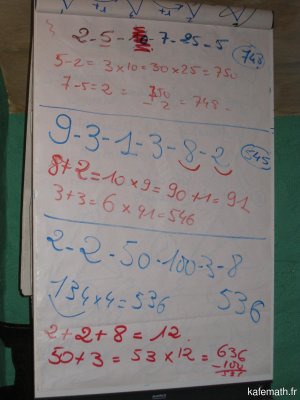 2-5-10-7-25-5 748
5-2=3×10=30×25=750
7-5=2 = 750
-2 =748-
9-3-1-3-8-2 545
8+2=10×9=90+1=91
3+3=6×91=546
2-2-50-100-3-8
134×4=536 536
2+2+8=12.
50+3=53×12=636
-100
536
kafemath.fr